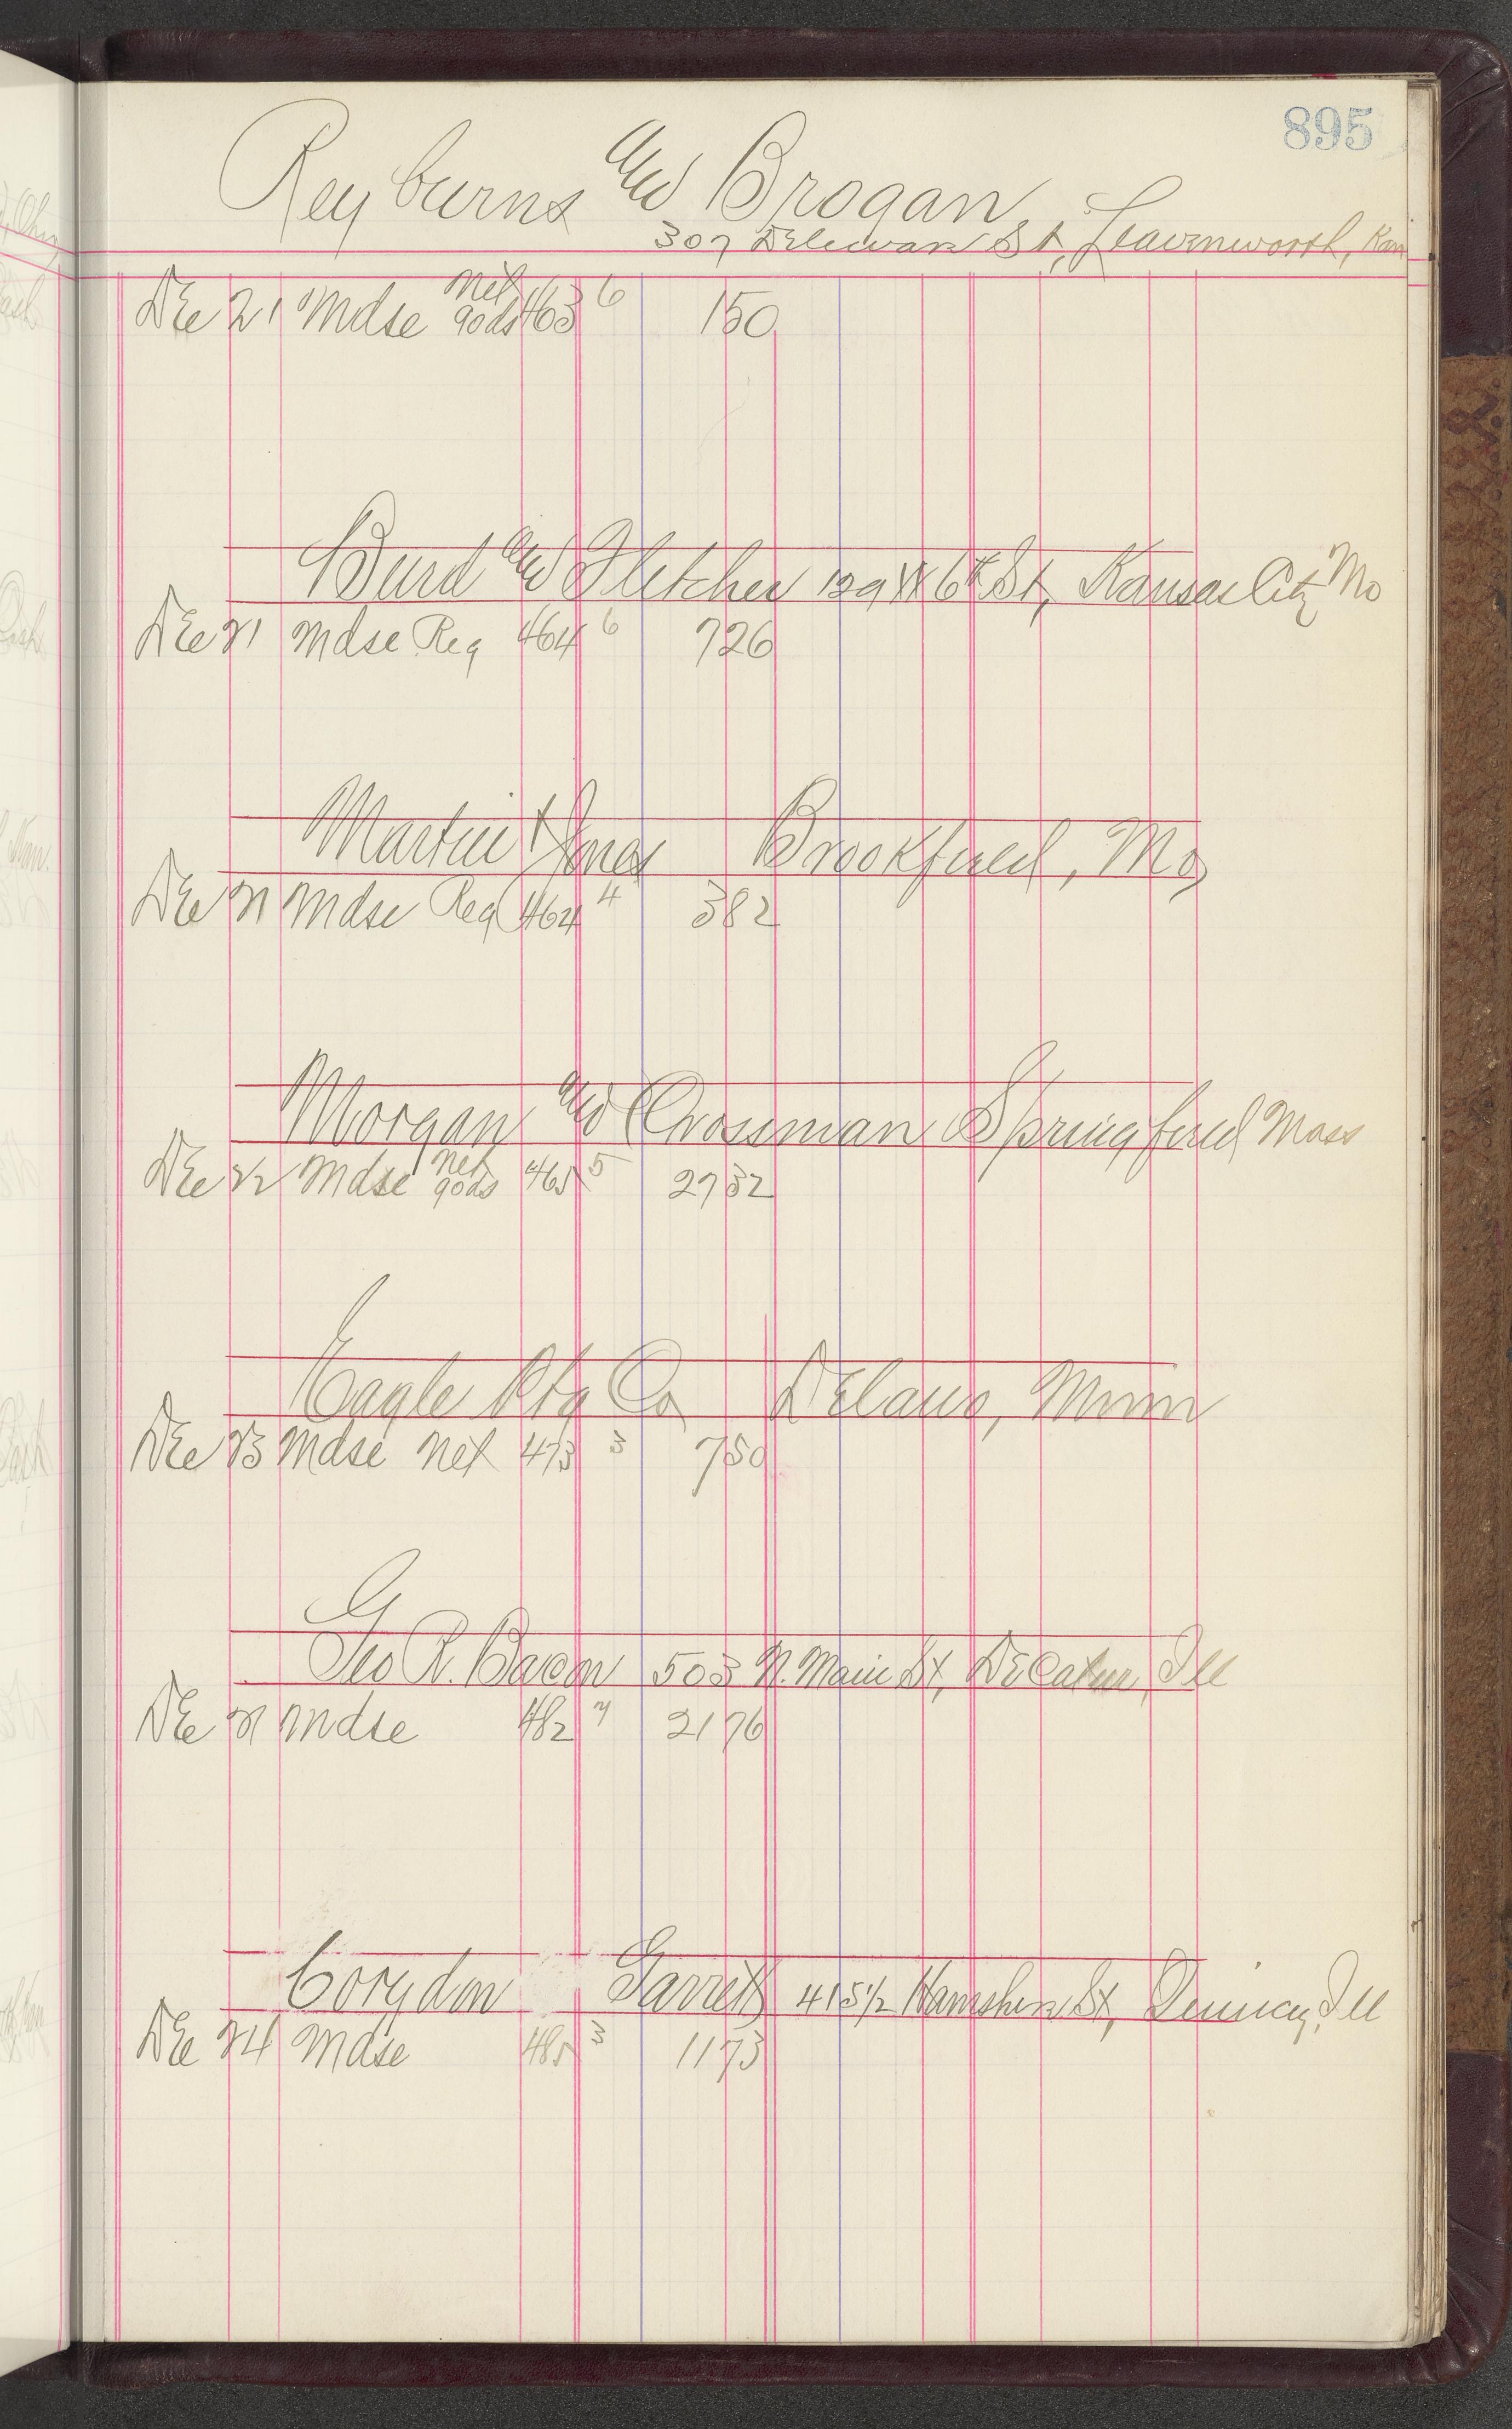 895
Reyburns and Brogan
307 Deleware St, Leavenworth, Kan
Dec 21 Mdse Net gods 463 6 150
Burd and Fletcher 129 W 6th St, Kansas City Mo
Dec 21 Mdse Reg 464 6 726
Martin & Jones Brookfield, Mo
Dec 21 Mdse Reg 464 4 382
Morgan and Crossman Springfield Mass
Dec 22 Mdse Net gods 465 5 2732
Eagle Ptg Co Delano, Minn
Dec 23 Mdse Net 473 3 750
Geo R. Bacon 503 N. Main St, Decatur, Ill
Dec 21 Mdse 482 2176
Corydon Garrett 415 1/2 Hamshire St, Quincy, Ill
Dec 24 Mdse 485 3 1173